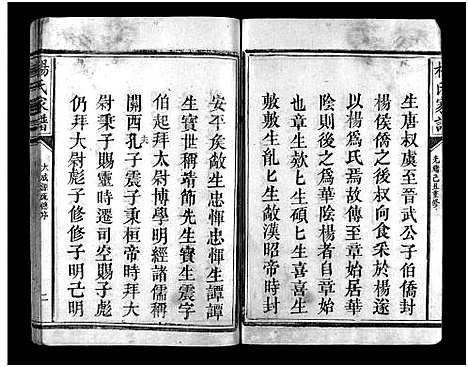 楊氏家譜
光緒己丑重修
生唐叔虞至晉武公子伯僑封
楊侯僑之後叔向食采於楊遂
以楊為氏焉故傳至章始居華
陰後之稱華陰楊者自章始則
章生也也生款生碩生喜喜生
敷敷生胤生敞生漢昭帝時封
安平矦敞生忠惲忠惲生譚譚
生寶世稱靖節先生寶生震字
伯起拜太尉博學明經諸儒稱
關西孔夫子震子秉桓帝時拜大
尉秉子賜靈時遷司空賜子彪
仍拜大尉彪子修修子明己明
楊氏家譜
大威源流總序
二